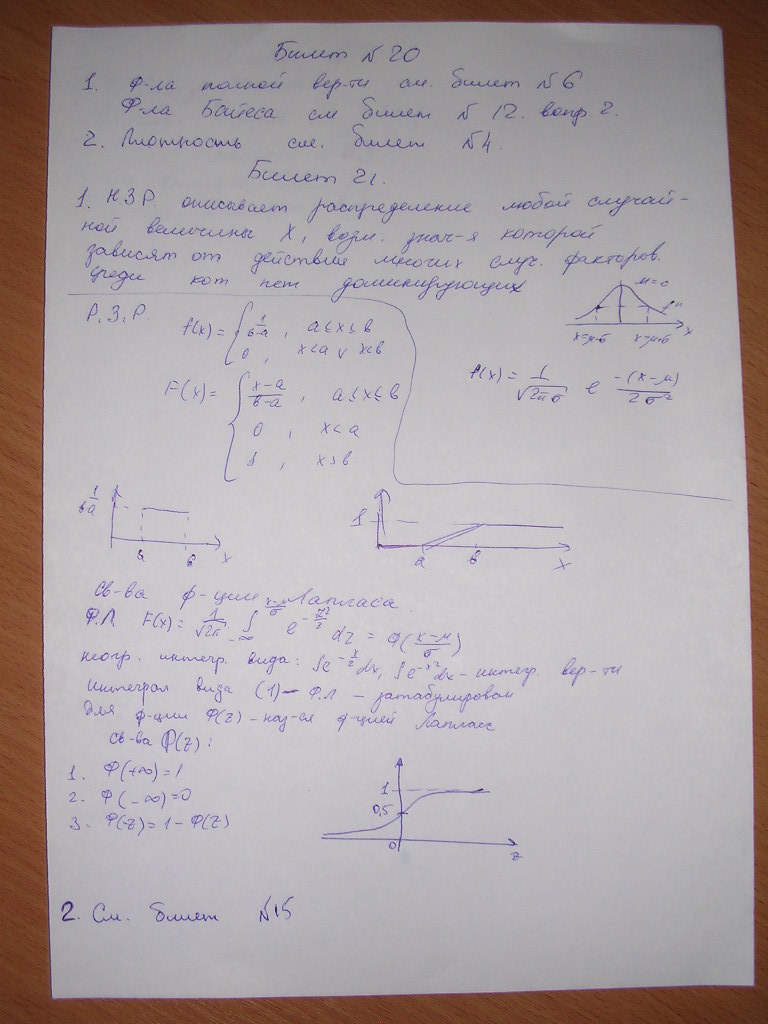 Билет №20
1. Ф-ла полной вер-ти см. билет №6
Ф-ла Байеса см билет №12. вопр. 2.
2. Плотность см. билет №4.
Билет 21.
1. НЗР. описывает распределение любой случай-
ной величины X, возм. знач-я которой
зависят от действия многих случ. факторов.
среди кот нет доминирующих
Р.З.Р. f(x) = { 1/(в-а), a≤x≤в
0, x<a v x<в
F(x) = { (x-a)/(в-a), a≤x≤в
0, x<a
1, x≥в
M=0
x
x=μ-σ x=μ+σ
f(x) = 1/√(2πσ) e -(x-μ)/2σ²
1/(ва)
a в x
1
a в x
Св-ва ф-ции Лапласа.
Ф.Л. F(x) = 1/√2π ∫_{-∞}^{(x-μ)/σ} e^{-z²/2} dz = Ф((x-μ)/σ)
неопр. интегр. вида: ∫e^{-x/2}dx, ∫e^{-x²}dx - интегр. вер-ти
Интеграл вида (1) - Ф.Л - затабулирован
для ф-ции Ф(z) - наз-ся ф-цией Лапласс
Св-ва Ф(z):
1. Ф(+∞)=1
2. Ф(-∞)=0
3. Ф(-z)=1-Ф(z)
1
0,5
0
z
2. См. билет №15